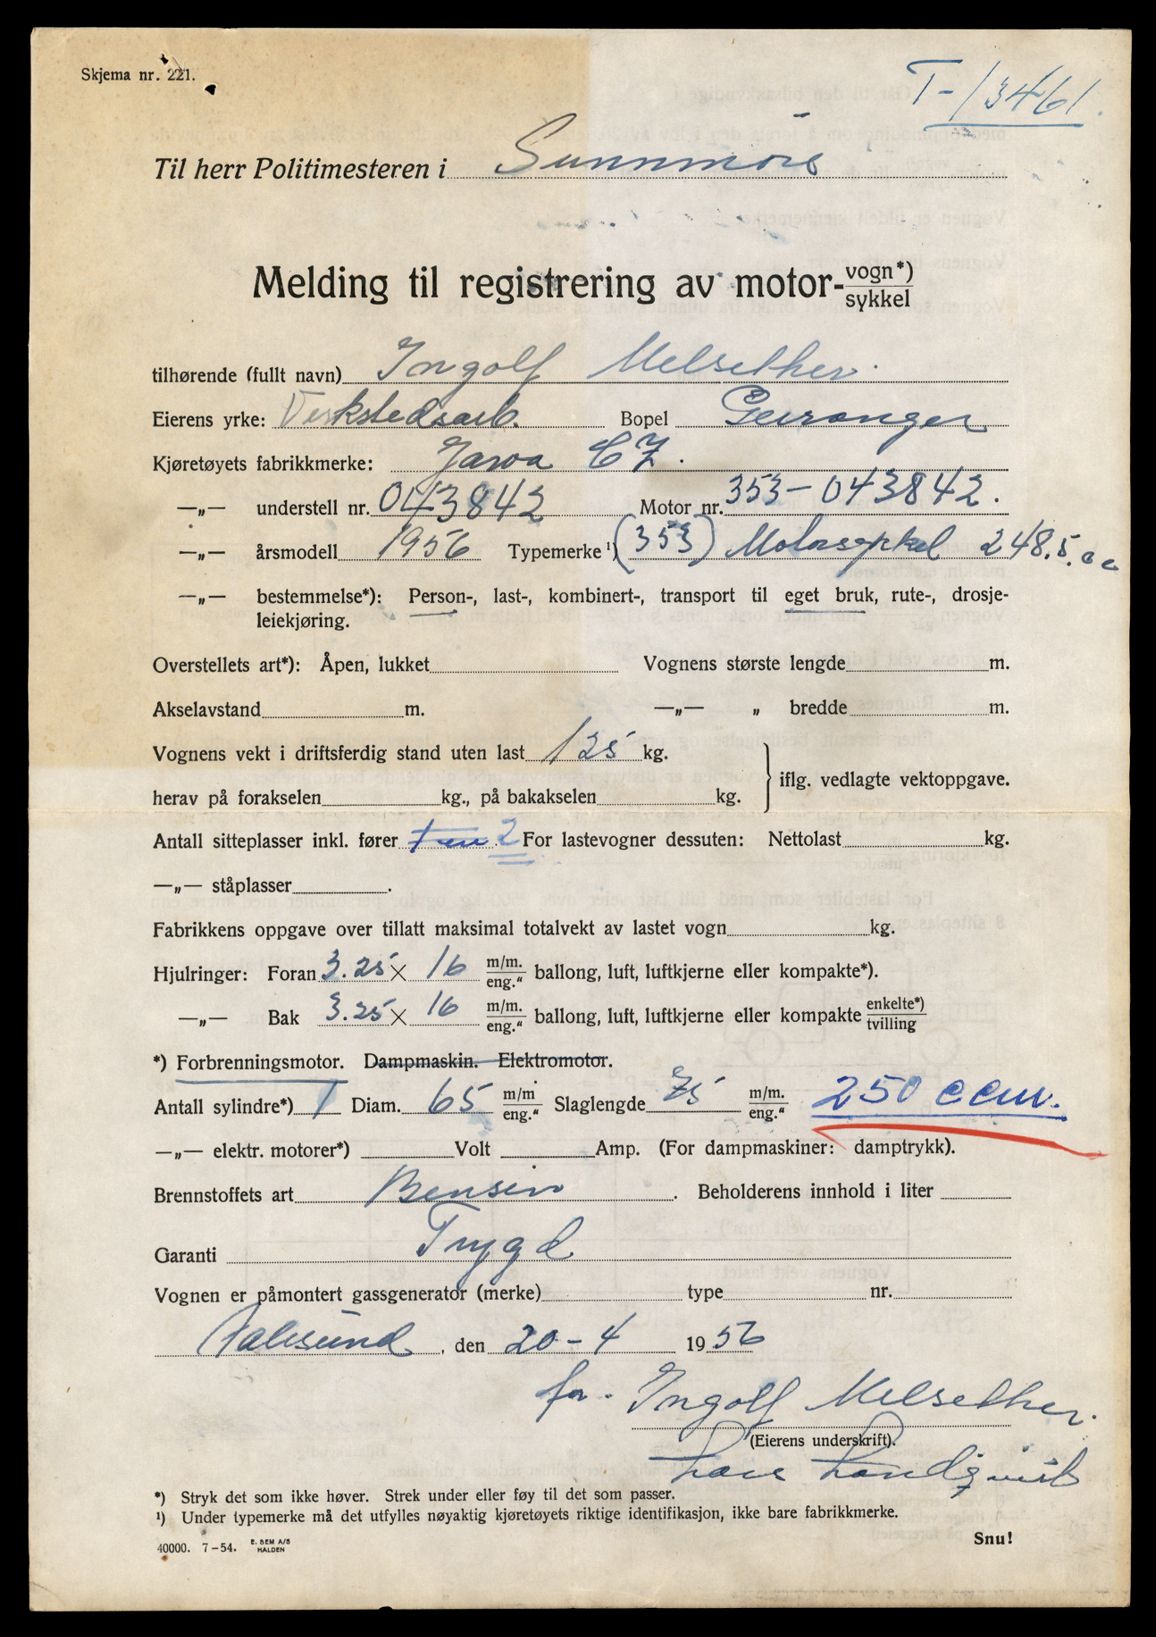 Skjema nr. 221.
T-13461.
Til herr Politimesteren i Sunnmöre
Melding til registrering av motor-vogn*)
sykkel
tilhørende (fullt navn) Ingolf Melsether.
Eierens yrke: Verkstedsarb. Bopel Geiranger
Kjøretøyets fabrikkmerke: Jawa CZ.
—„— understell nr. 043842 Motor nr. 353-043842.
—„— årsmodell 1956 Typemerke ¹) (353) Motorsykkel 248.5.cc
—„— bestemmelse*): Person-, last-, kombinert-, transport til eget bruk, rute-, drosje-
leiekjøring.
Overstellets art*): Åpen, lukket Vognens største lengde m.
Akselavstand m. —„— „ bredde m.
Vognens vekt i driftsferdig stand uten last 125 kg.
iflg. vedlagte vektoppgave.
herav på forakselen kg., på bakakselen kg.
Antall sitteplasser inkl. fører 2 For lastevogner dessuten: Nettolast kg.
—„— ståplasser .
Fabrikkens oppgave over tillatt maksimal totalvekt av lastet vogn kg.
Hjulringer: Foran 3.25 × 16 m/m. eng.“ ballong, luft, luftkjerne eller kompakte*).
—„— Bak 3.25 × 16 m/m. eng.“ ballong, luft, luftkjerne eller kompakte enkelte*) tvilling
*) Forbrenningsmotor. Dampmaskin. Elektromotor.
Antall sylindre*) 1 Diam. 65 m/m eng.“ Slaglengde 75 m/m. eng.“ 250 ccm.
—„— elektr. motorer*) Volt Amp. (For dampmaskiner: damptrykk).
Brennstoffets art Bensin . Beholderens innhold i liter
Garanti Trygd
Vognen er påmontert gassgenerator (merke) type nr.
Aalesund, den 20-4 1956
for. Ingolf Melsether.
(Eierens underskrift).
*) Stryk det som ikke høver. Strek under eller føy til det som passer.
¹) Under typemerke må det utfylles nøyaktig kjøretøyets riktige identifikasjon, ikke bare fabrikkmerke.
40000. 7-54. E. SEM A/S HALDEN
Snu!